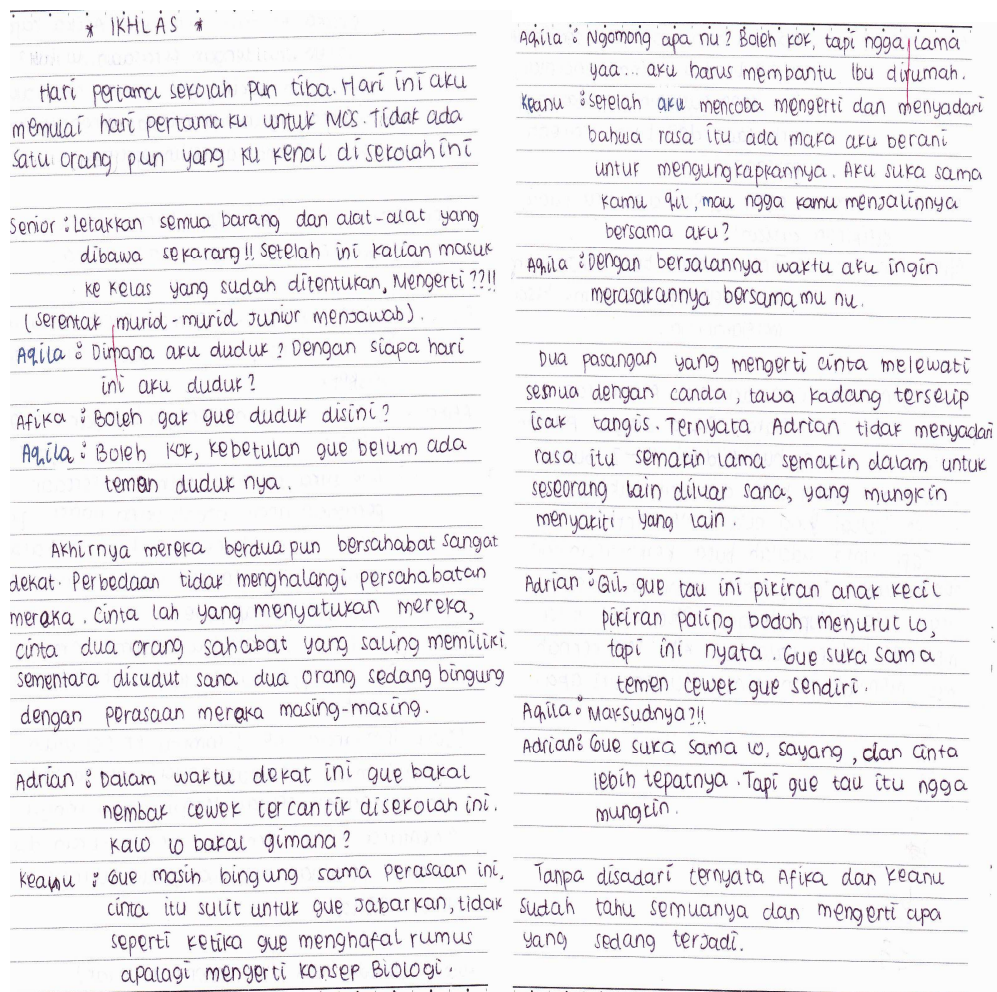 * IKHLAS *
Hari pertama sekolah pun tiba. Hari ini aku
memulai hari pertamaku untuk MOS. Tidak ada
satu orang pun yang ku kenal disekolah ini
Senior : Letakkan semua barang dan alat-alat yang
dibawa sekarang!! Setelah ini kalian masuk
ke kelas yang sudah ditentukan, Mengerti??!!
(Serentak murid-murid Junior menjawab).
Aqila : Dimana aku duduk? Dengan siapa hari
ini aku duduk?
Afika : Boleh gak gue duduk disini?
Aqila : Boleh kok, kebetulan gue belum ada
temen duduk nya.
Akhirnya mereka berdua pun bersahabat sangat
dekat. Perbedaan tidak menghalangi persahabatan
mereka. Cinta lah yang menyatukan mereka,
cinta dua orang sahabat yang saling memiliki.
Sementara disudut sana dua orang sedang bingung
dengan perasaan mereka masing-masing.
Adrian : Dalam waktu dekat ini gue bakal
nembak cewek tercantik disekolah ini.
Kalo lo bakal gimana?
Keanu : Gue masih bingung sama perasaan ini,
cinta itu sulit untuk gue jabarkan, tidak
seperti ketika gue menghafal rumus
apalagi mengerti konsep Biologi.
Aqila : Ngomong apa nu? Boleh kok, tapi ngga lama
yaa... aku harus membantu Ibu dirumah.
Keanu : Setelah aku mencoba mengerti dan menyadari
bahwa rasa itu ada maka aku berani
untuk mengungkapkannya. Aku suka sama
kamu Qil, mau ngga kamu menjalinnya
bersama aku?
Aqila : Dengan berjalannya waktu aku ingin
merasakannya bersama mu nu.
Dua pasangan yang mengerti cinta melewati
semua dengan canda, tawa kadang terselip
isak tangis. Ternyata Adrian tidak menyadari
rasa itu semakin lama semakin dalam untuk
seseorang lain diluar sana, yang mungkin
menyakiti yang lain.
Adrian : Qil, gue tau ini pikiran anak kecil
pikiran paling bodoh menurut lo,
tapi ini nyata. Gue suka sama
temen cewek gue sendiri.
Aqila : Maksudnya?!!
Adrian : Gue suka sama lo, sayang, dan cinta
lebih tepatnya. Tapi gue tau itu ngga
mungkin.
Tanpa disadari ternyata Afika dan Keanu
sudah tahu semuanya dan mengerti apa
yang sedang terjadi.